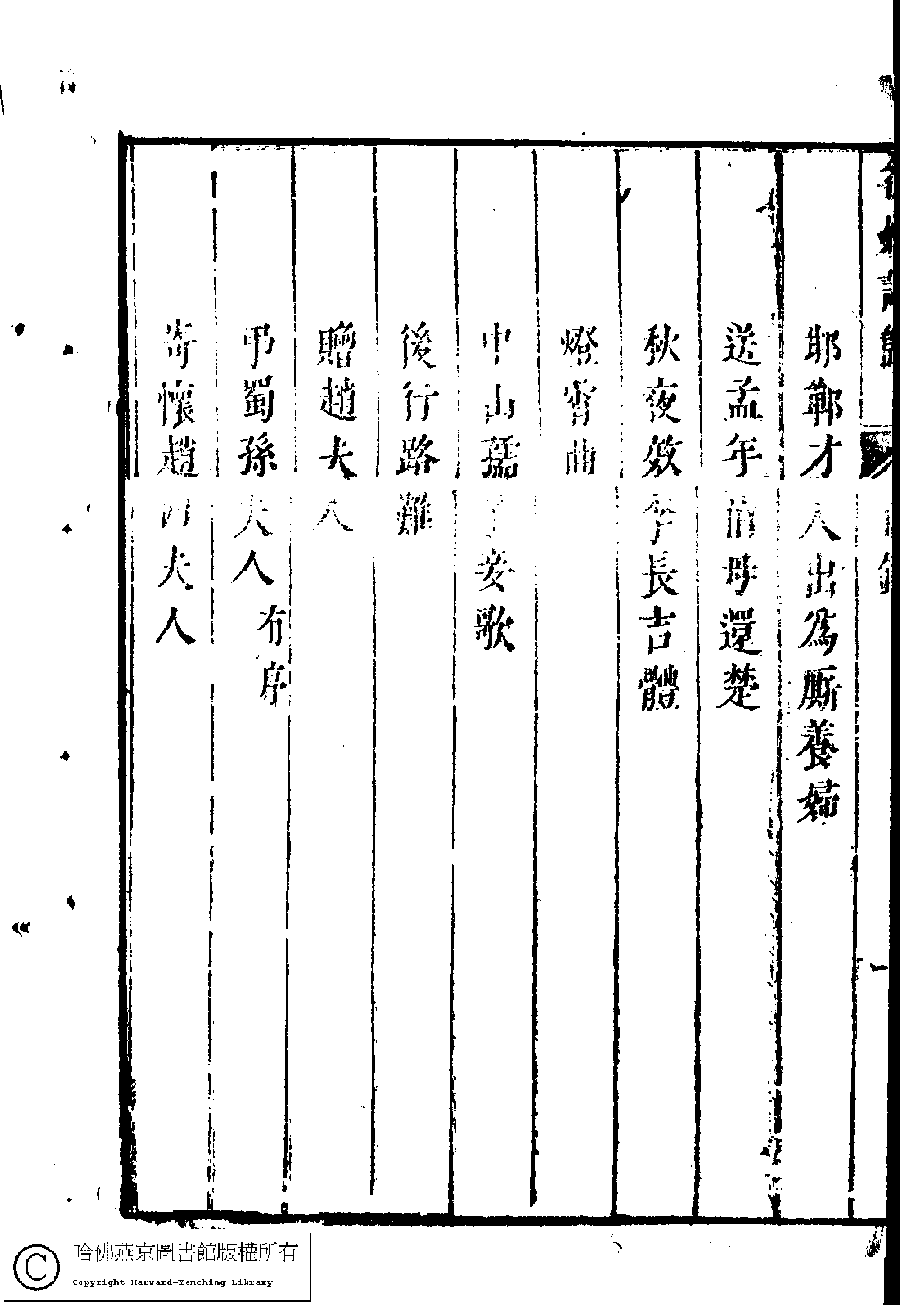 邯鄲才人出爲厮養婦
送孟年伯母還楚
秋夜效李長吉體
燈宵曲
中山孺子妾歌
後行路難
贈趙夫人
弔蜀孫夫人有序
寄懷趙夫人
哈佛燕京圖書館版權所有
Copyright Harvard-Yenching Library